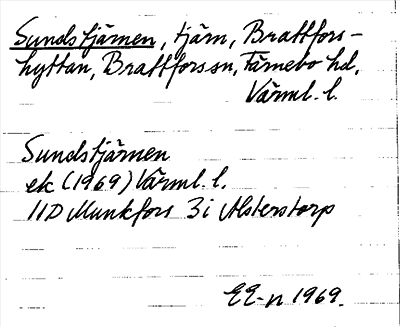 Sundstjärnen, tjärn, Brattfors-
hyttan, Brattforssn, Färnebo hd,
Värml. l.
Sundstjärnen
ek (1969) Värml. l.
11D Munkfors 3i Alsterstorp
EE-n 1969.